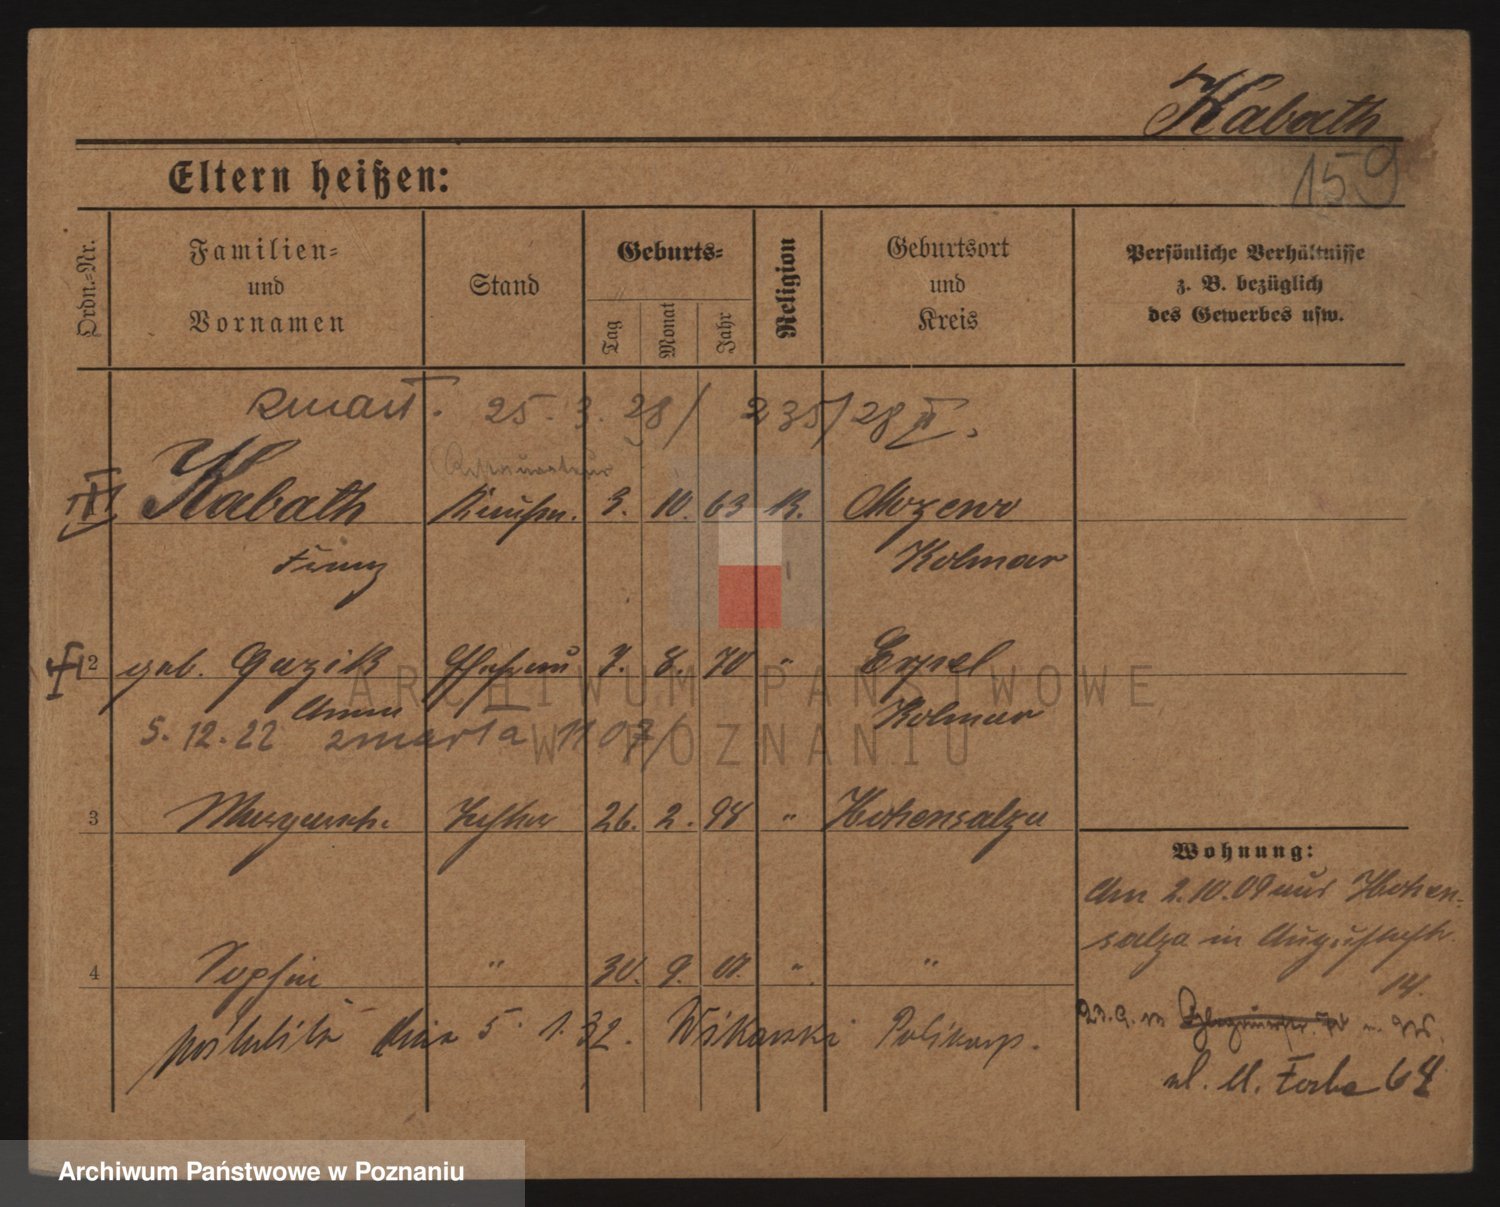 Kabath
159
Eltern heißen:
Ordn.-Nr.
Familien-
und
Vornamen
Stand
Geburts-
Tag
Monat
Jahr
Religion
Geburtsort
und
Kreis
Persönliche Verhältnisse
z. B. bezüglich
des Gewerbes usw.
zmarł. 25. 3. 28/ 235/28
Restaurateur
Kabath Kaufm. 3. 10. 63 K. Mozewo
Franz Kolmar
2 geb. Gazik Ehefrau 7. 8. 70 " Erpel
Anna Kolmar
5.12.22 zmarła 1107/
3 Margareth. Tochter 26. 2. 98 " Hohensalza
Wohnung:
Am 2.10.09 aus Hohen-
salza in Augustastr.
14.
4 Sophie " 30. 9. 01. " "
poślubiła dnia 5. 1. 32. Polikarp.
23.9.
ul. M. Focha 64
ARCHIWUM PAŃSTWOWE
W POZNANIU
Archiwum Państwowe w Poznaniu